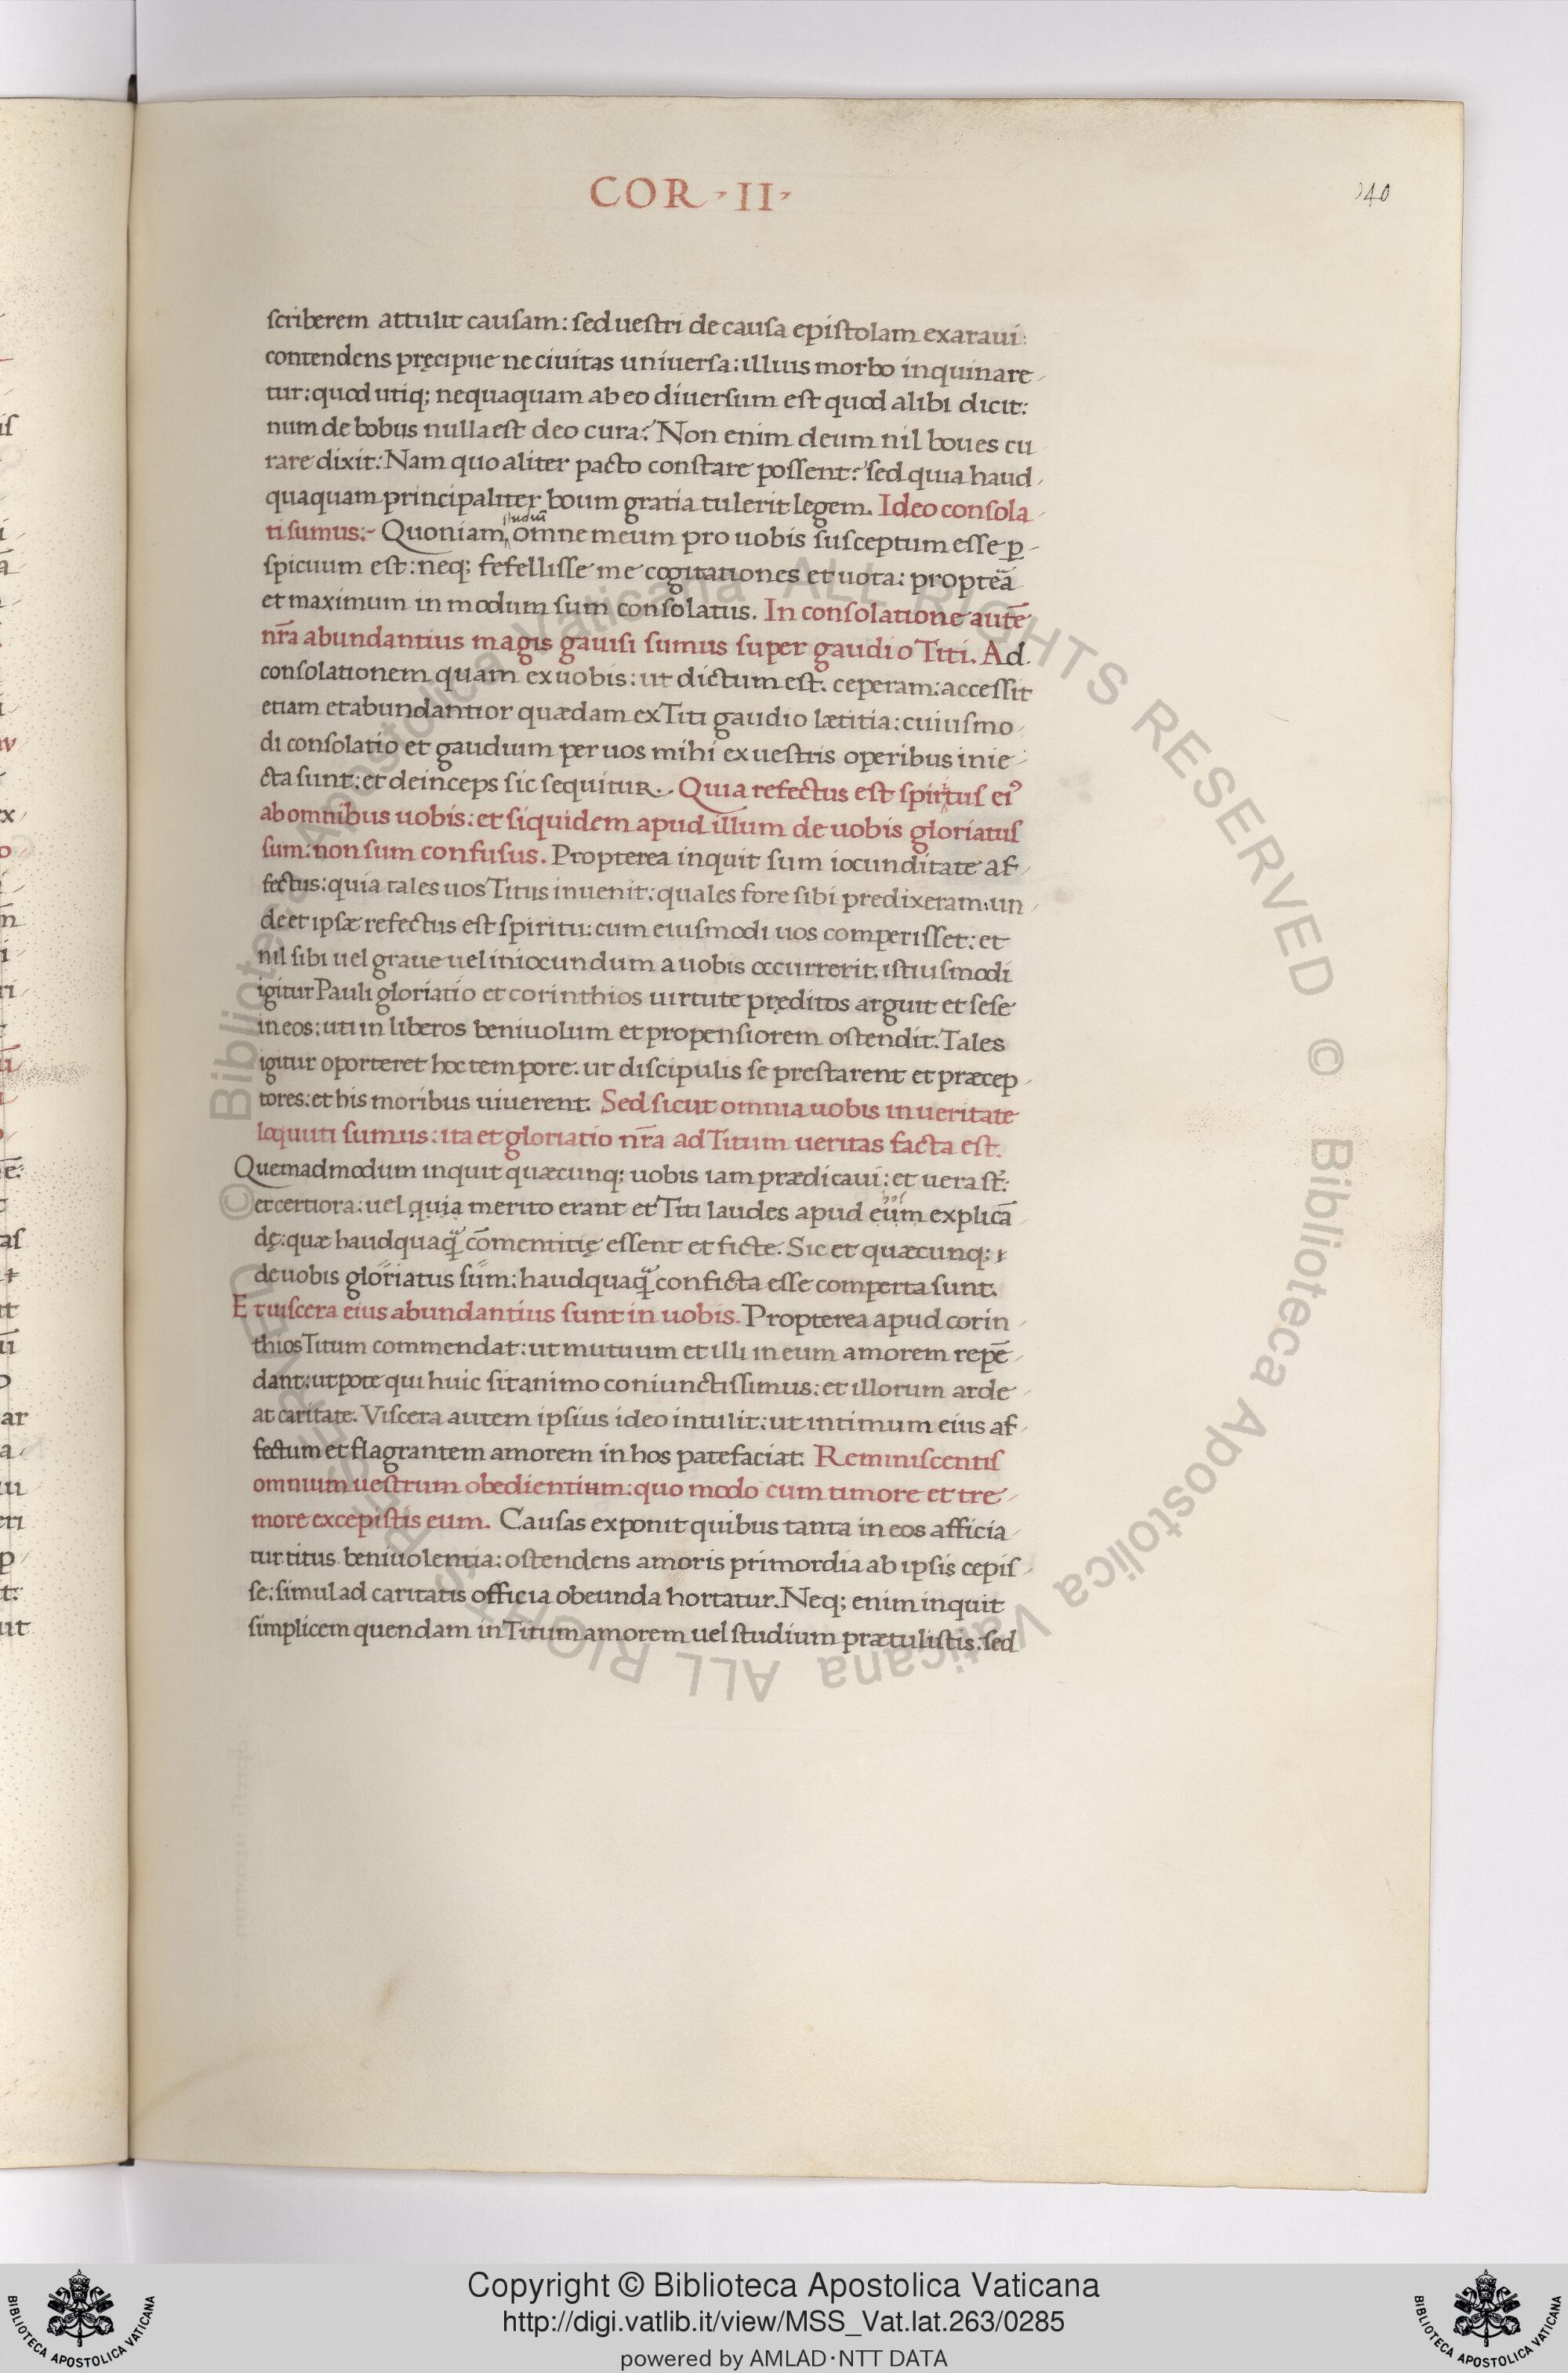 COR · II ·
140
scriberem attulit causam: sed uestri de causa epistolam exaraui:
contendens pręcipue ne ciuitas uniuersa: illius morbo inquinare
tur: quod utiq; nequaquam ab eo diuersum est quod alibi dicit:
num de bobus nulla est deo cura? Non enim deum nil boues cu
rare dixit: Nam quo aliter pacto constare possent? sed quia haud
quaquam principaliter boum gratia tulerit legem. Ideo consola
studiũ
ti sumus:~ Quoniam omne meum pro uobis susceptum esse ꝑ
spicuum est: neq; fefellisse me cogitationes et uota: proptẽa
et maximum in modum sum consolatus. In consolatione autẽ
nr̃a abundantius magis gauisi sumus super gaudio Titi. Ad
consolationem quam ex uobis: ut dictum est. ceperam: accessit
etiam et abundantior quædam ex Titi gaudio lætitia: cuiusmo
di consolatio et gaudium per uos mihi ex uestris operibus inie
cta sunt: et deinceps sic sequituR. Quia refectus est spiritus ei⁹
ab omnibus uobis: et siquidem apud illum de uobis gloriatus
sum: non sum confusus. Propterea inquit sum iocunditate af
fectus: quia tales uos Titus inuenit: quales fore sibi predixeram: un
de et ipsæ refectus est spiritu: cum eiusmodi uos comperisset: et
nil sibi uel graue uel iniocundum a uobis occurrerit. istiusmodi
igitur Pauli gloriatio et corinthios uirtute pręditos arguit et sese
in eos: uti in liberos beniuolum et propensiorem ostendit. Tales
igitur oporteret hoc tempore. ut discipulis se prestarent et præcep
tores: et his moribus uiuerent. Sed sicut omnia uobis in ueritate
loquuti sumus: ita et gloriatio nr̃a ad Titum ueritas facta est.
Quemadmodum inquit quæcunq; uobis iam prædicaui: et uera st̃:
uos
et certiora: uel quia merito erant et Titi laudes apud eum explicã
dę: quæ haudquaq̃ cõmentitię essent et ficte. Sic et quæcunq;
de uobis gloriatus sum: haudquaq̃ conficta esse comperta sunt.
Et uiscera eius abundantius sunt in uobis. Propterea apud corin
thios Titum commendat: ut mutuum et illi in eum amorem repẽ
dant: utpote qui huic sit animo coniunctissimus: et illorum arde
at caritate. Viscera autem ipsius ideo intulit: ut intimum eius af
fectum et flagrantem amorem in hos patefaciat. Reminiscentis
omnium uestrum obedientium: quo modo cum timore et tre
more excepistis eum. Causas exponit quibus tanta in eos afficia
tur titus beniuolentia: ostendens amoris primordia ab ipsis cepis
se: simul ad caritatis officia obeunda hortatur. Neq; enim inquit
simplicem quendam in Titum amorem uel studium prætulistis: sed
© Biblioteca Apostolica Vaticana ALL RIGHTS RESERVED © Biblioteca Apostolica Vaticana ALL RIGHTS RESERVED
Copyright © Biblioteca Apostolica Vaticana
http://digi.vatlib.it/view/MSS_Vat.lat.263/0285
powered by AMLAD·NTT DATA
BIBLIOTECA APOSTOLICA VATICANA
BIBLIOTECA APOSTOLICA VATICANA